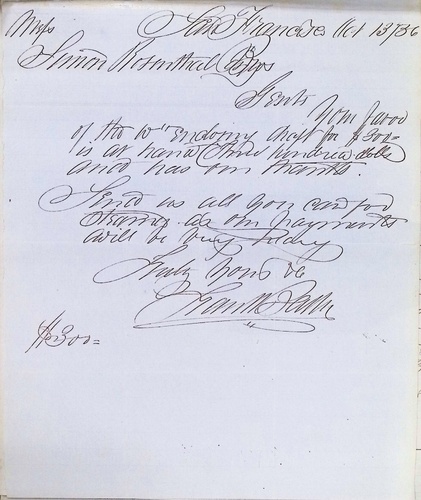 Mess San Francisco Oct 13/56
Simon Rosenthal
Gents
Your favor
of the 10" Enclosing draft for $300=
is at hand (Three hundred dolls
and has our thanks.
Send us all you can
as our payments
will be very heavy
Truly Yours &c
Frank
$300=